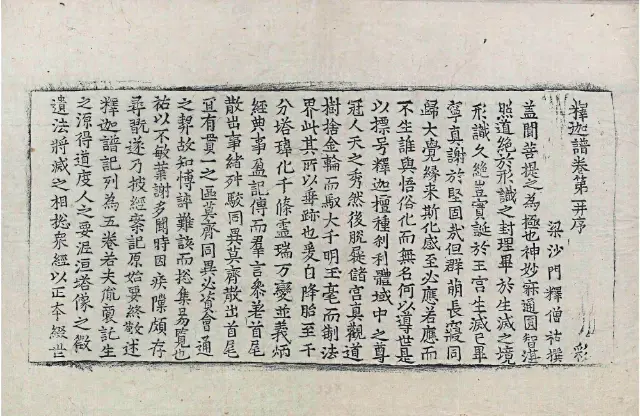 釋迦譜卷第一并序 彩
梁沙門釋僧祐撰
蓋聞菩提之為極也神妙寂通圓智湛
照道絕於形識之封理畢於生滅之境
形識久絕豈實誕於王宮生滅已畢
寧真謝於堅固哉但群萌長寢同
歸大覺緣來斯化感至必應若應而
不生誰與悟俗化而無名何以導世是
以標号釋迦擅種剎利體域中之尊
冠人天之秀然後脫屣儲宮真觀道
樹捨金輪而馭大千明玉毫而制法
界此其所以垂跡也爰自降胎至于
分塔瑋化千條靈瑞万變並義炳
經典事盈記傳而羣言參差首尾
散出事緒舛駮同異莫齊散出首尾
宜有貫一之區莫齊同異必資會通
之契故知博訪難該而揔集易覽也
祐以不敏業謝多聞時因疾隟頗存
尋翫遂乃披經案記原始要終敬述
釋迦譜記列為五卷若夫胤裔託生
之源得道度人之要泥洹塔像之徵
遺法將滅之相揔眾經以正本綴世